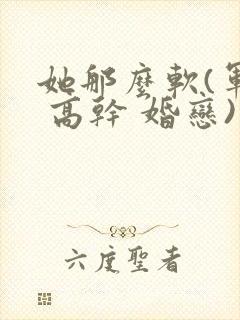 她那麼軟(軍
高幹 婚戀)
六度聖者